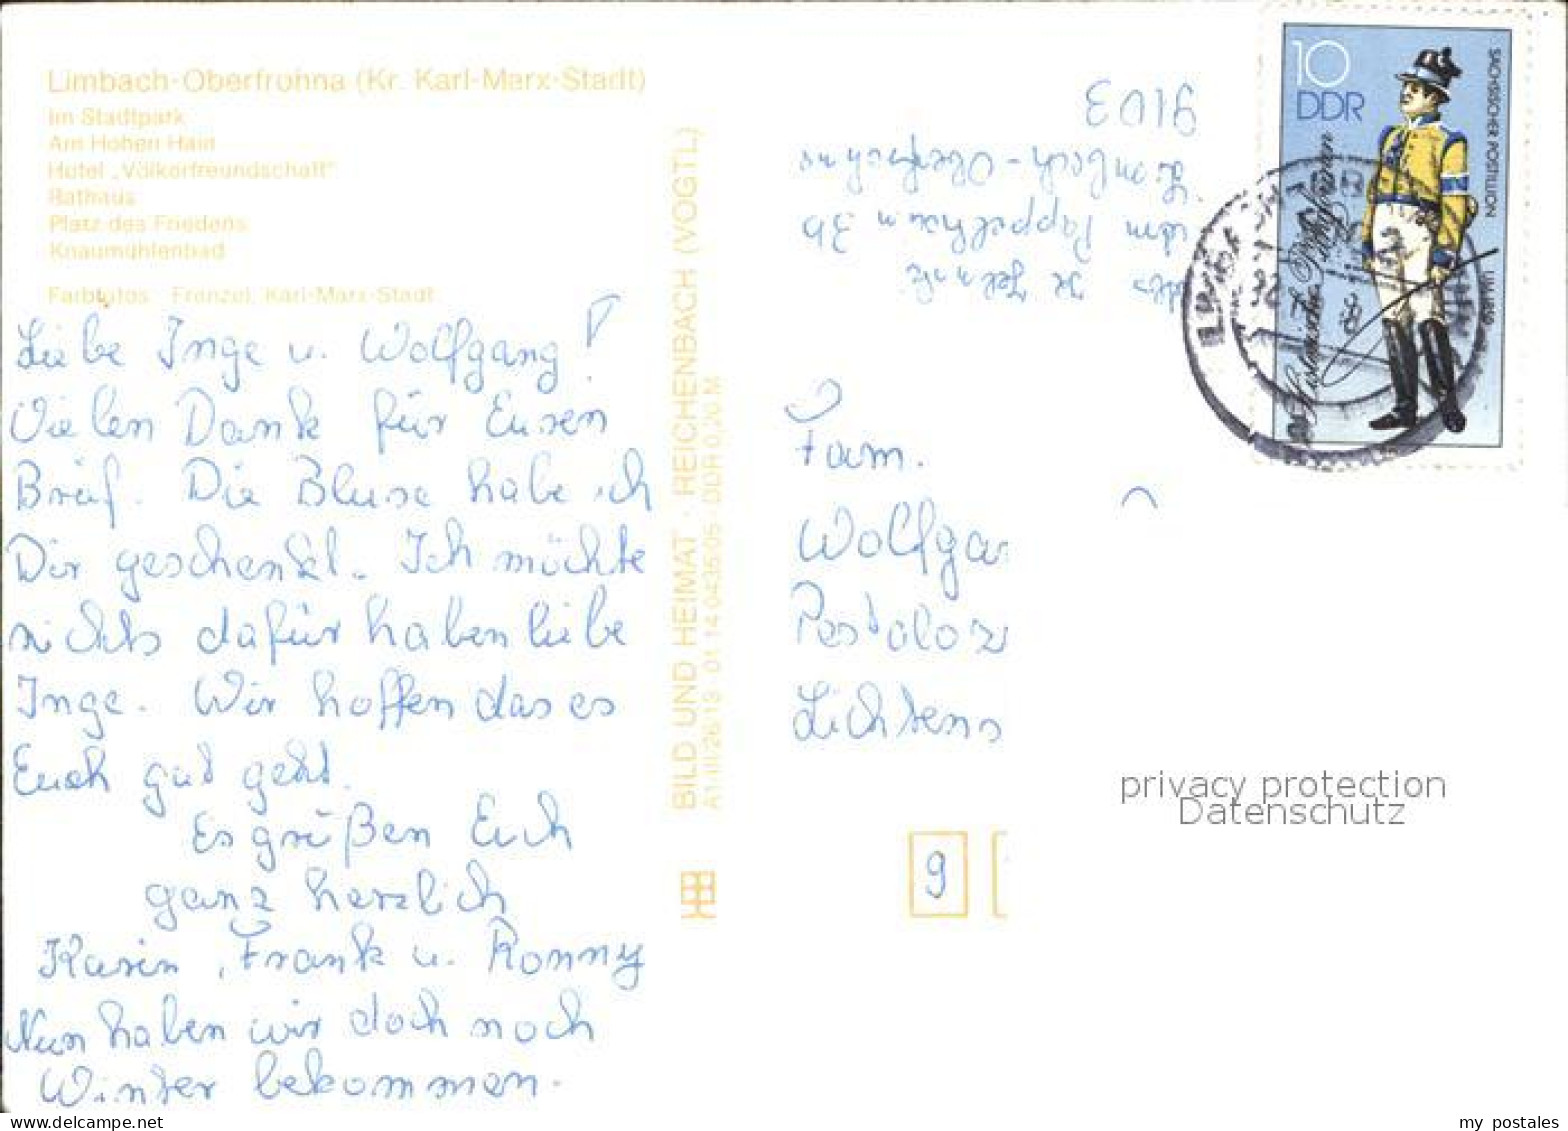 Limbach-Oberfrohna (Kr. Karl-Marx-Stadt)
Im Stadtpark
Am Hohen Hain
Hotel „Völkerfreundschaft"
Rathaus
Platz des Friedens
Knaumühlenbad
Farbfotos: Frenzel, Karl-Marx-Stadt
Liebe Inge u. Wolfgang!
Vielen Dank für Euren
Brief. Die Bluse habe ich
Dir geschenkt. Ich möchte
nichts dafür haben liebe
Inge. Wir hoffen das es
Euch gut geht.
Es grüßen Euch
ganz herzlich
Karin, Frank u. Ronny
Nun haben wir doch noch
Winter bekommen.
BILD UND HEIMAT · REICHENBACH (VOGTL)
A1/III/26/13 01 14 0436/05 DDR 0,20 M
10
DDR
SÄCHSISCHER POSTILLION
UM 1850
Historische Postuniformen
Abs.
am Pappelhain 3b
Limbach-Oberfrohna
9103
Fam.
Wolfga
Pestaloz
Lichtens
9
privacy protection
Datenschutz
my postales